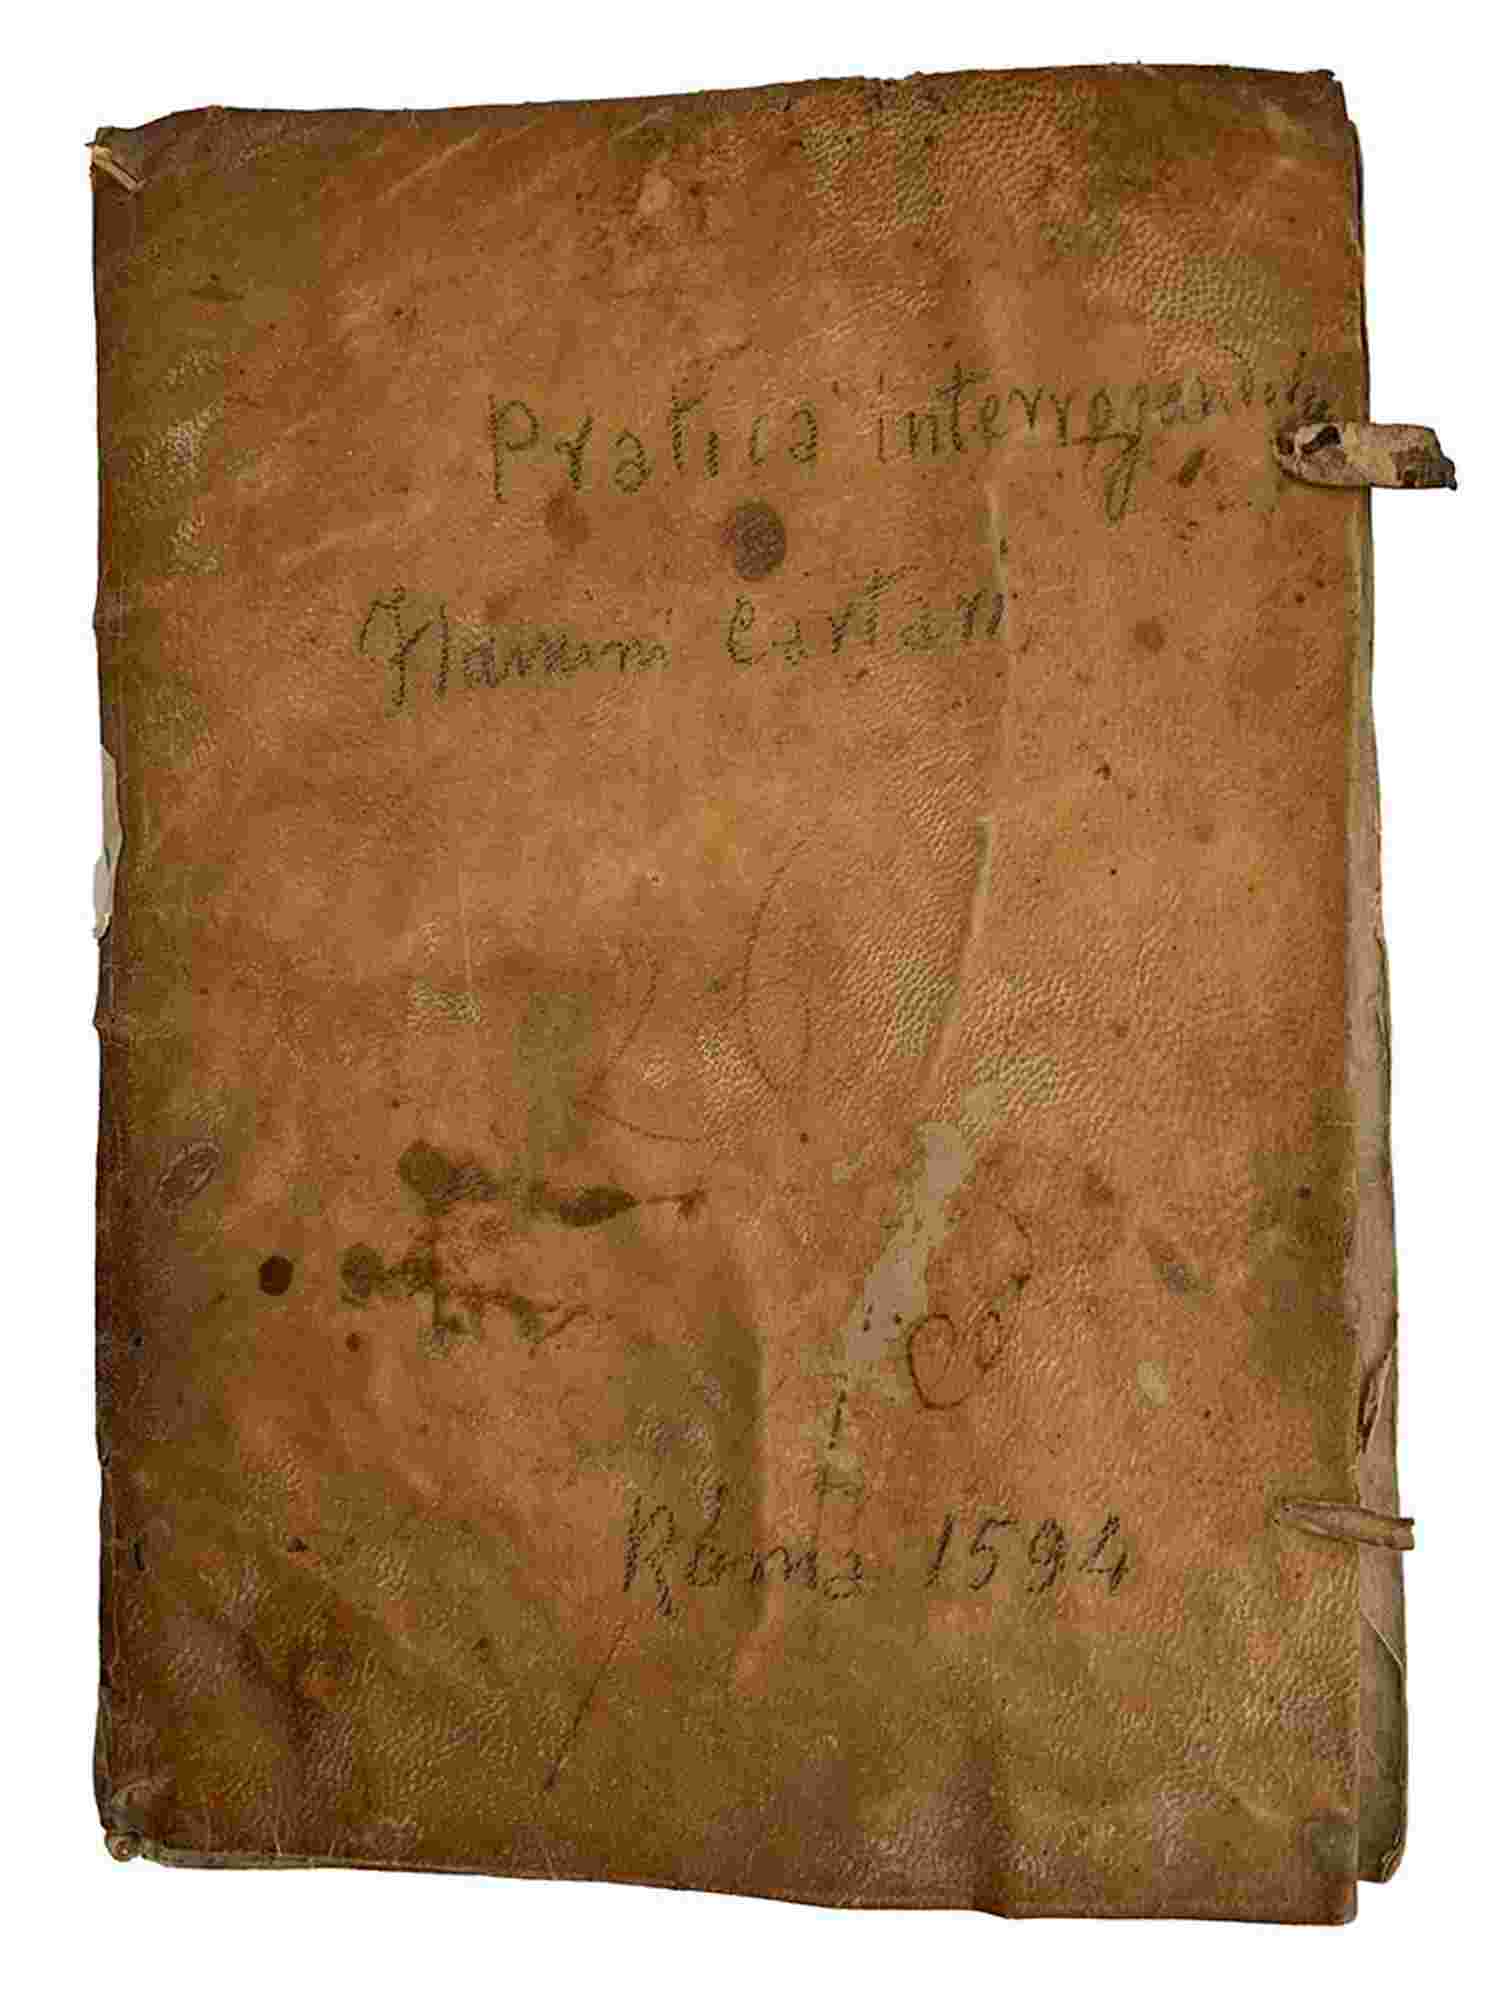 Pratica interrogandi
Flaminii Cartarii
Roma 1594